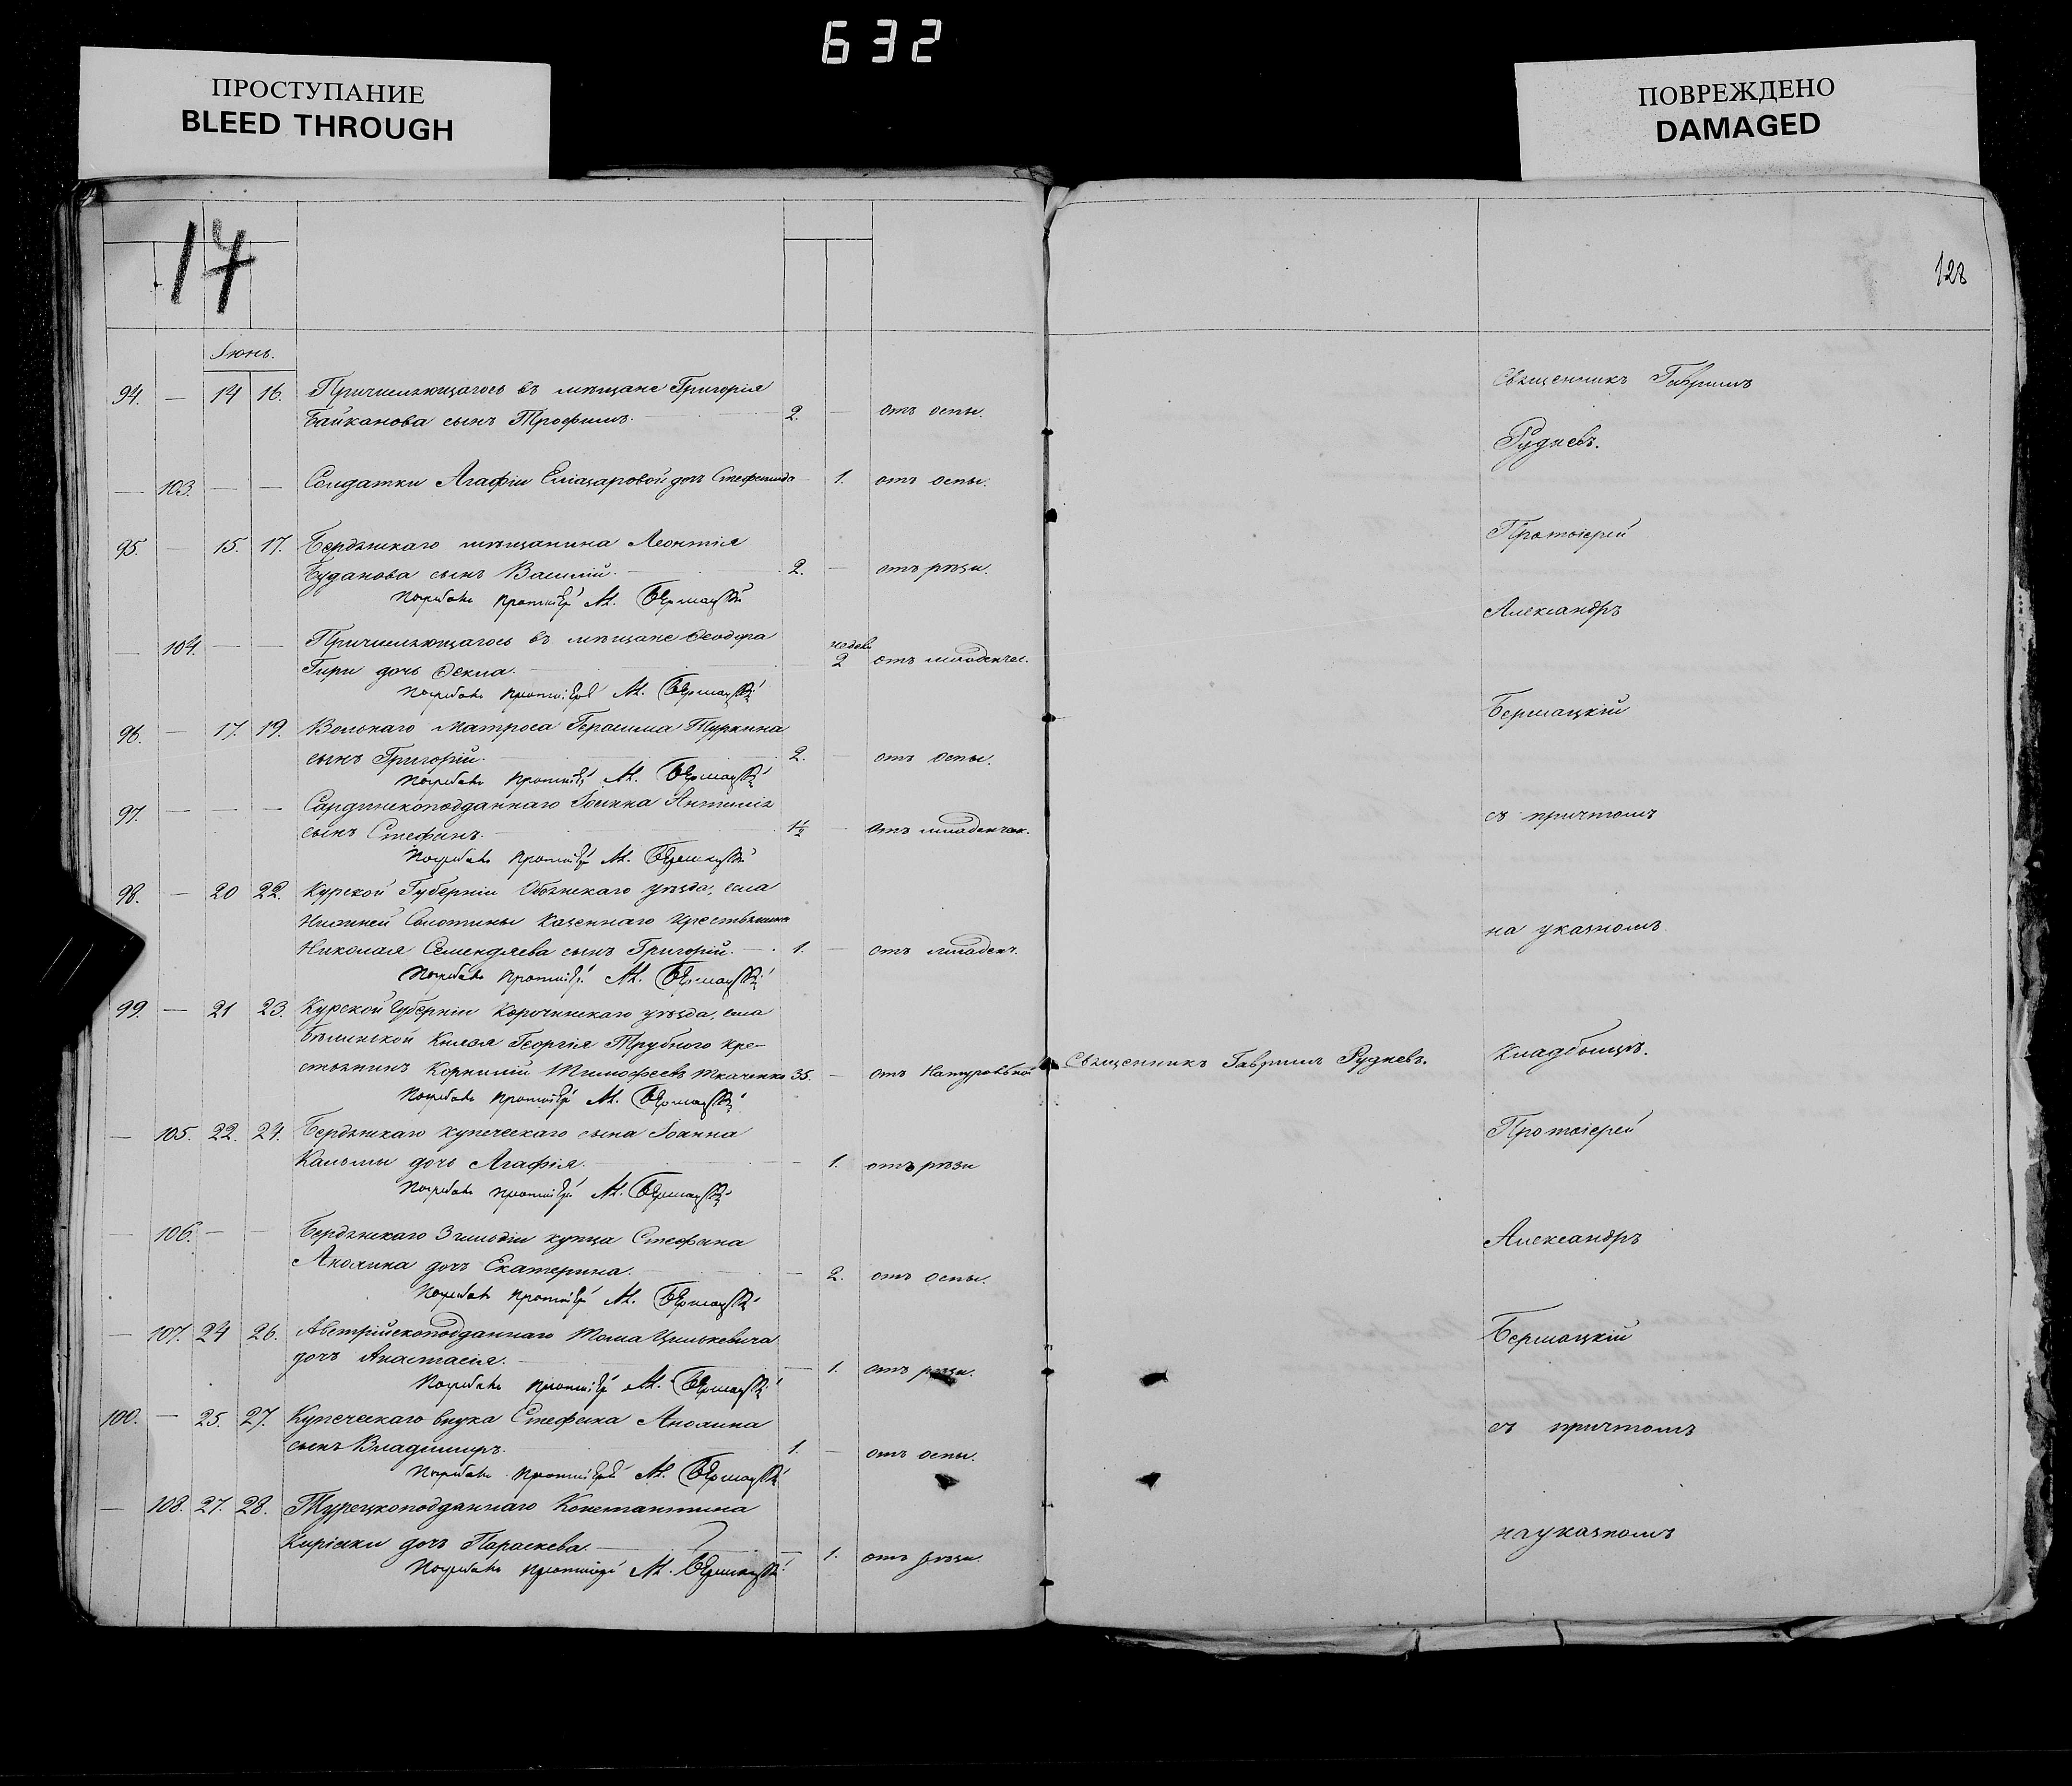 632
ПРОСТУПАНИЕ
BLEED THROUGH
ПОВРЕЖДЕНО
DAMAGED
14
128
Іюнь.
94. — 14 16. Причисляющагось въ мѣщане Григорія
Байканова сынъ Трофимъ. 2. — отъ оспы.
— 103. — — Солдатки Агафіи дочь 1. отъ оспы.
95. — 15. 17. Бердянскаго мѣщанина Леонтія
Буданова сынъ Василій. 2. — отъ рѣзи.
Погребалъ протоіерей А. Бершацкій
— 104. — — Причисляющагось въ мѣщане Ѳеодора
Гири дочь Ѳекла. недѣл. 2 отъ младенчес.
Погребалъ протоіерей А. Бершацкій
96. — 17. 19. Вольнаго матроса Герасима Туркина
сынъ Григорій. 2. — отъ оспы.
Погребалъ протоіерей А. Бершацкій
97. — — — Сардинскоподданнаго Іоанна
сынъ Стефанъ. 1½ — отъ младенчес.
Погребалъ протоіерей А. Бершацкій
98. — 20 22. Курской Губерніи Обоянскаго уѣзда, села
Нижней Солотины казеннаго крестьянина
Николая Семендяева сынъ Григорій. 1. — отъ младенч.
Погребалъ протоіерей А. Бершацкій
99. — 21 23. Курской Губерніи Корочанскаго уѣзда, села
Князя Георгія Трубного кре-
стьянинъ Корнилій Тимофеевъ Ткаченко 35. — отъ
Погребалъ протоіерей А. Бершацкій
— 105. 22. 24. Бердянскаго купеческаго сына Іоанна
Кальмы дочь Агафія. — 1. отъ рѣзи
Погребалъ протоіерей А. Бершацкій
— 106. — — Бердянскаго 3 гильдіи купца Стефана
дочь Екатерина. — 2. отъ оспы.
Погребалъ протоіерей А. Бершацкій
— 107. 24 26. Австрійскоподданнаго Тома Цилькевича
дочь Анастасія. — 1. отъ рѣзи.
Погребалъ протоіерей А. Бершацкій
100. — 25. 27. Купеческаго внука Стефана
сынъ Владиміръ. 1. — отъ оспы.
Погребалъ протоіерей А. Бершацкій
— 108. 27. 28. Турецкоподданнаго Константина
Киріяки дочь Параскева. — 1. отъ рѣзи.
Погребалъ протоіерей А. Бершацкій
Священникъ Гавріилъ Рудневъ.
Священникъ Гавріилъ
Рудневъ.
Протоіерей
Александръ
Бершацкій
съ причтомъ
на указномъ
Кладбищѣ.
Протоіерей
Александръ
Бершацкій
съ причтомъ
на указномъ